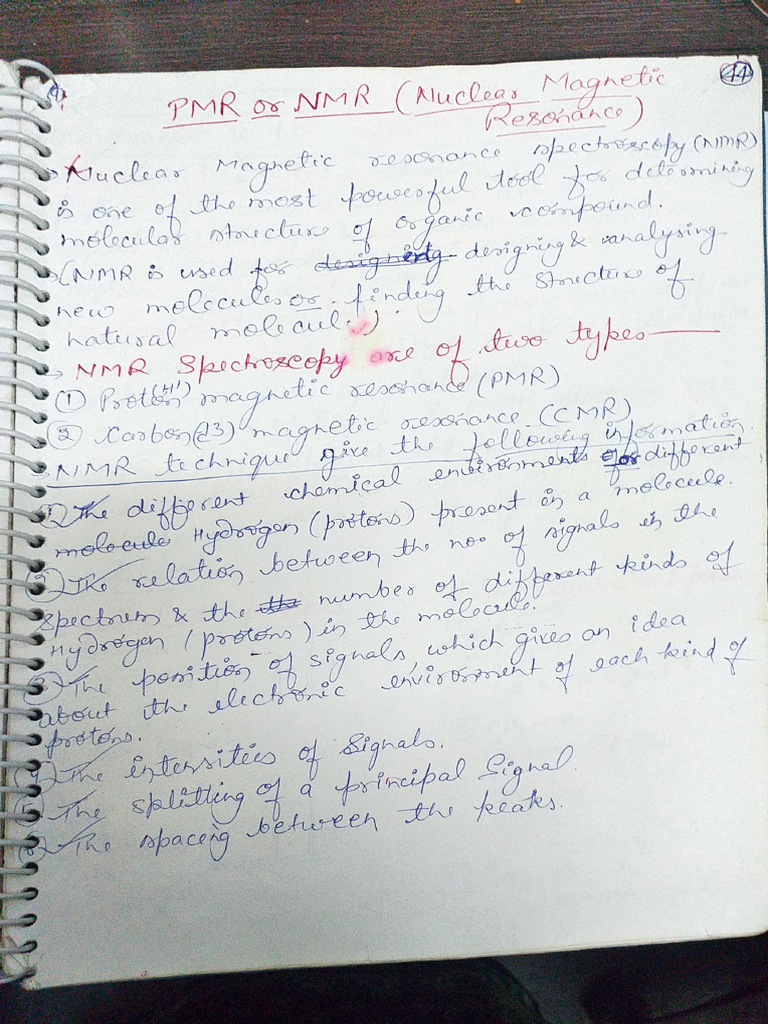 44
PMR or NMR (Nuclear Magnetic
Resonance)
→ Nuclear Magnetic resonance spectroscopy (NMR)
is one of the most powerful tool for determining
molecular structure of organic compound.
→ (NMR is used for designing designing & analysing
new molecules or finding the structure of
natural molecul.)
→ NMR Spectroscopy are of two types —
① Proton (H¹) magnetic resonance (PMR)
② Carbon (13) magnetic resonance (CMR)
NMR technique give the following information.
① The different chemical environments for different
molecule Hydrogen (protons) present in a molecule.
② The relation between the no. of signals in the
spectrum & the the number of different kinds of
Hydrogen (protons) in the molecule.
③ The position of signals which gives an idea
about the electronic environment of each kind of
protons.
④ The intensities of Signals.
⑤ The splitting of a principal Signal.
⑥ The spaceing between the peaks.